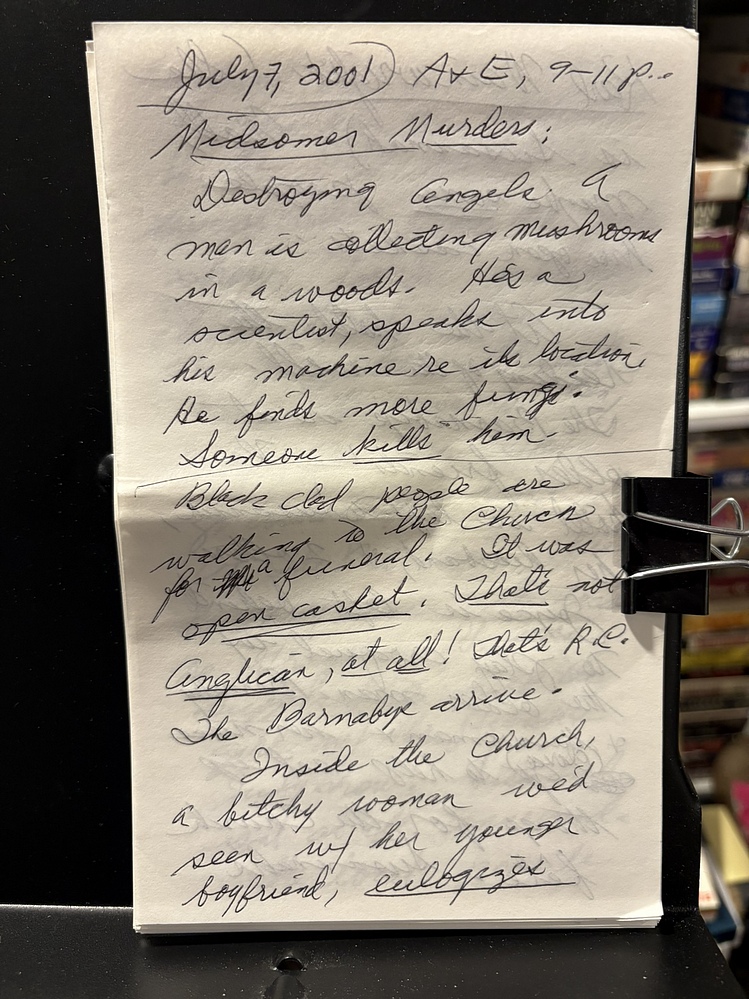 July 7, 2001) A+E, 9-11 p..
Midsomer Murders:
Destroying Angels. A
man is collecting mushrooms
in a woods. He's a
scientist, speaks into
his machine re its location.
He finds more fungi.
Someone kills him.
Black clad people are
walking to the Church
for a funeral. It was
open casket. That's not
Anglican, at all! That's R.C.
The Barnabys arrive.
Inside the Church,
a bitchy woman we'd
seen w/ her younger
boyfriend, eulogizes